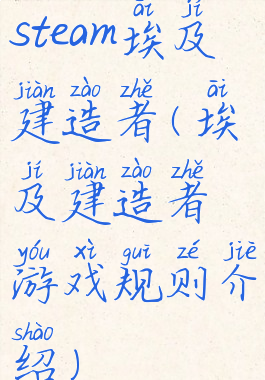 āi jí
steam埃及
jiàn zào zhě āi
建造者(埃
jí jiàn zào zhě
及建造者
yóu xì guī zé jiè
游戏规则介
shào
绍)